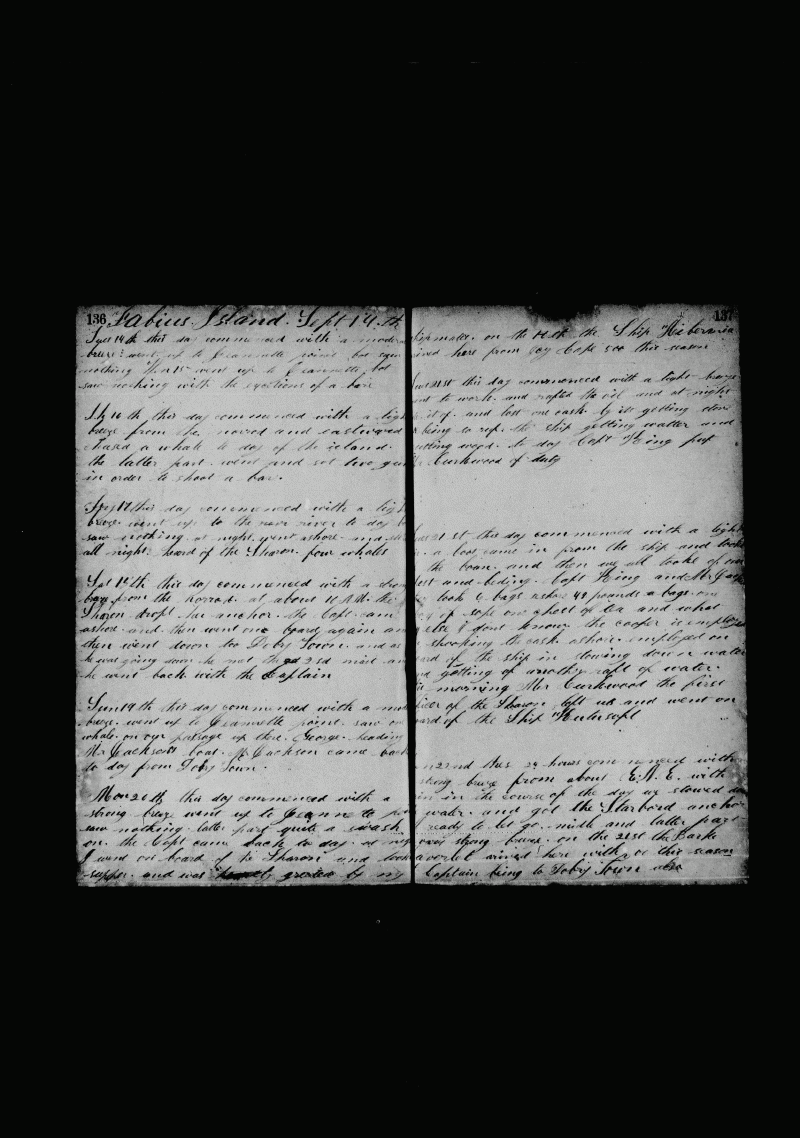 136 Fabius Island. Sept 14th
Tues 14th this day commenced with a moder
breeze went up to Jeannette point but saw
nothing went up to Jeannette but
saw nothing with the of a bare
16th this day commenced with a ligh
breeze from the norrad and eastward
chased a whale to day of the island.
the latter part went and set two gun
in order to shoot a bare.
17th this day commenced with a ligh
breeze. went up to the river to day b
saw nothing. at night went ashore
all night. heard of the Sharon. four whales
Sat 18th this day commenced with a stron
breeze from the Norrad. at about 11 A.M. the
Sharon dropt her anchor. the Capt. cam
ashore. and then went on board again an
then went down too Toby Town. and as
he was going down he met the 2nd mate an
he went back with the Captain
Sun 19th this day commenced with a mod
breeze. went up to Jeannette point. saw on
whale. on our passage up there. George. heading
Mr Jackson's boat. Mr Jackson came back
to day from Toby Town.
Mon 20th this day commenced with a
strong breeze went up to Jeannette poi
saw nothing. latter part quite a swash
on. the Capt came back to day. at nig
I went on board of the Sharon and took
supper. and was greeted by my
137
shipmates. on the the Ship Hibernia
ived here from Cape 500 this season
21st this day commenced with a light breeze
nt to work. and rafted the oil and at night
it of. and lost one cask by it getting
being to ref. the ship getting watter and
utting wood. to day Capt King put
Curkwood of duty
21st this day commenced with a light
a boat came in from the ship and took
the boan. and then we all tooke of our
est and beding. Capt King and Mr
took 6 bags 49 pounds a bag. one
of rope one chest of tea and what
else I dont know. the cooper is employed
shooking the cask ashore. employed on
ard of the ship in stowing down water
nd getting of another raft of water.
morning Mr Curkwood the first
ficer of the Sharon left us and went on
oard of the Ship
n 22nd this 24 hours commenced with
strong breeze from about E.N.E. with
in in the course of the day we stowed do
water. and got the Starbord anchor
ready to let go. midle and latter part
strong breeze. on the 21st the Barke
arived here with this season
Captain being to Toby Town